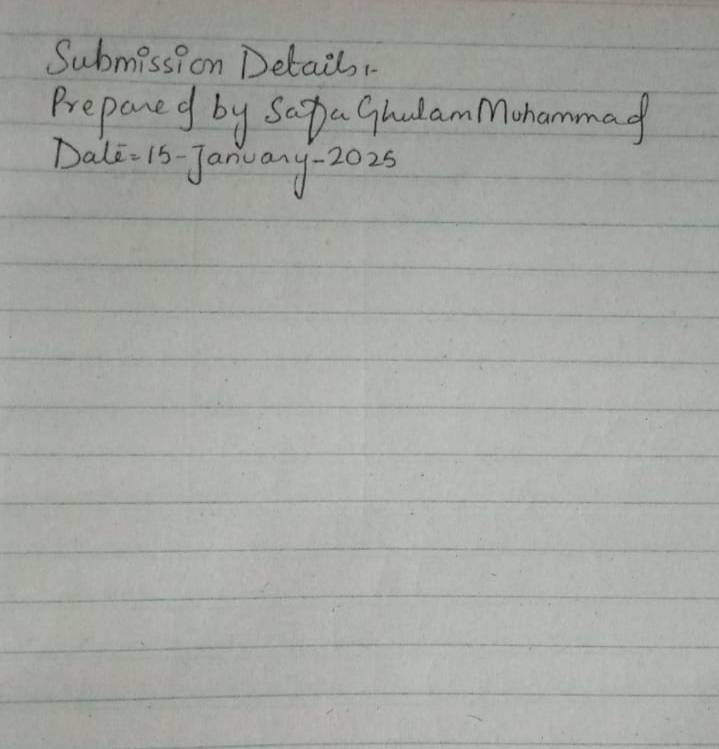 Submission Details:-
Prepared by Safa Ghulam Muhammad
Date=15-January-2025